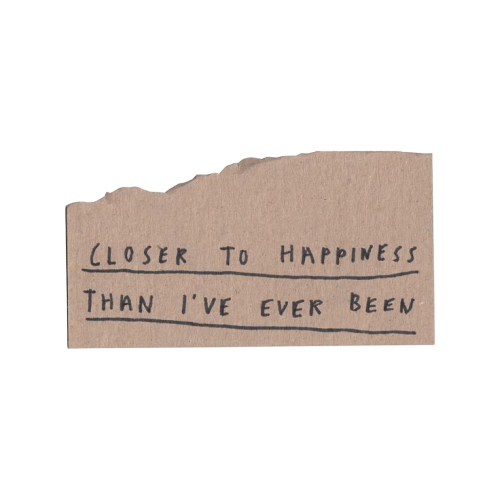 CLOSER TO HAPPINESS
THAN I'VE EVER BEEN